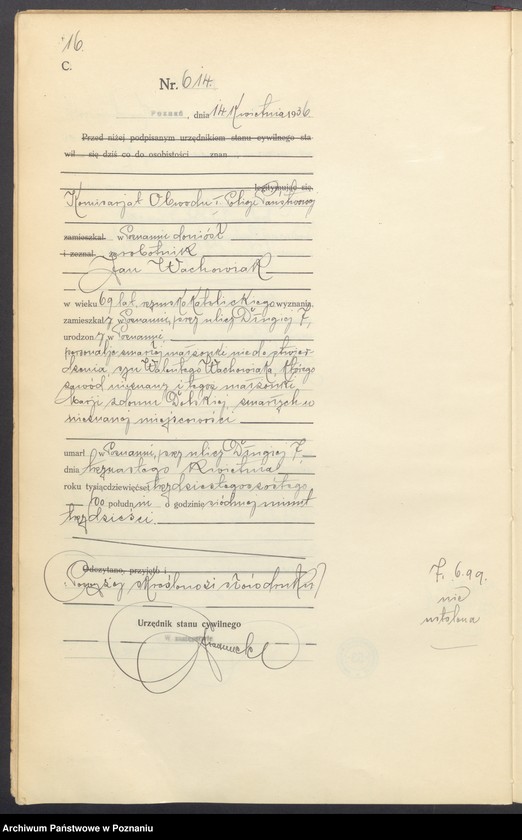 16.
C.
Nr. 614.
POZNAŃ, dnia 14 Kwietnia 1936
Przed niżej podpisanym urzędnikiem stanu cywilnego sta
wił się dziś co do osobistości znan
legitymując się
Komisarjat Obwodu I Policji Państwowej
zamieszkał w Poznaniu doniósł
i zeznał, że robotnik
Jan Wachowiak
w wieku 69 lat, rzymsko katolickiego wyznania,
zamieszkały w Poznaniu, przy ulicy Długiej 7,
urodzony w Poznaniu,
personalje zmarłej małżonki nie do stwier-
dzenia, syn Walentego Wachowiaka, którego
zawód nieznany i tegoż małżonki
z domu zmarłych w
nieznanej miejscowości
umarł w Poznaniu, przy ulicy Długiej 7
dnia trzynastego Kwietnia
roku tysiącdziewięćset trzydziestego szóstego
po południu o godzinie siódmej minut
trzydzieści.
Odczytano, przyjęto i
Powyżej skreślono słów druku
Urzędnik stanu cywilnego
W zastępstwie
7. 6.99.
nie
ustalona
Archiwum Państwowe w Poznaniu